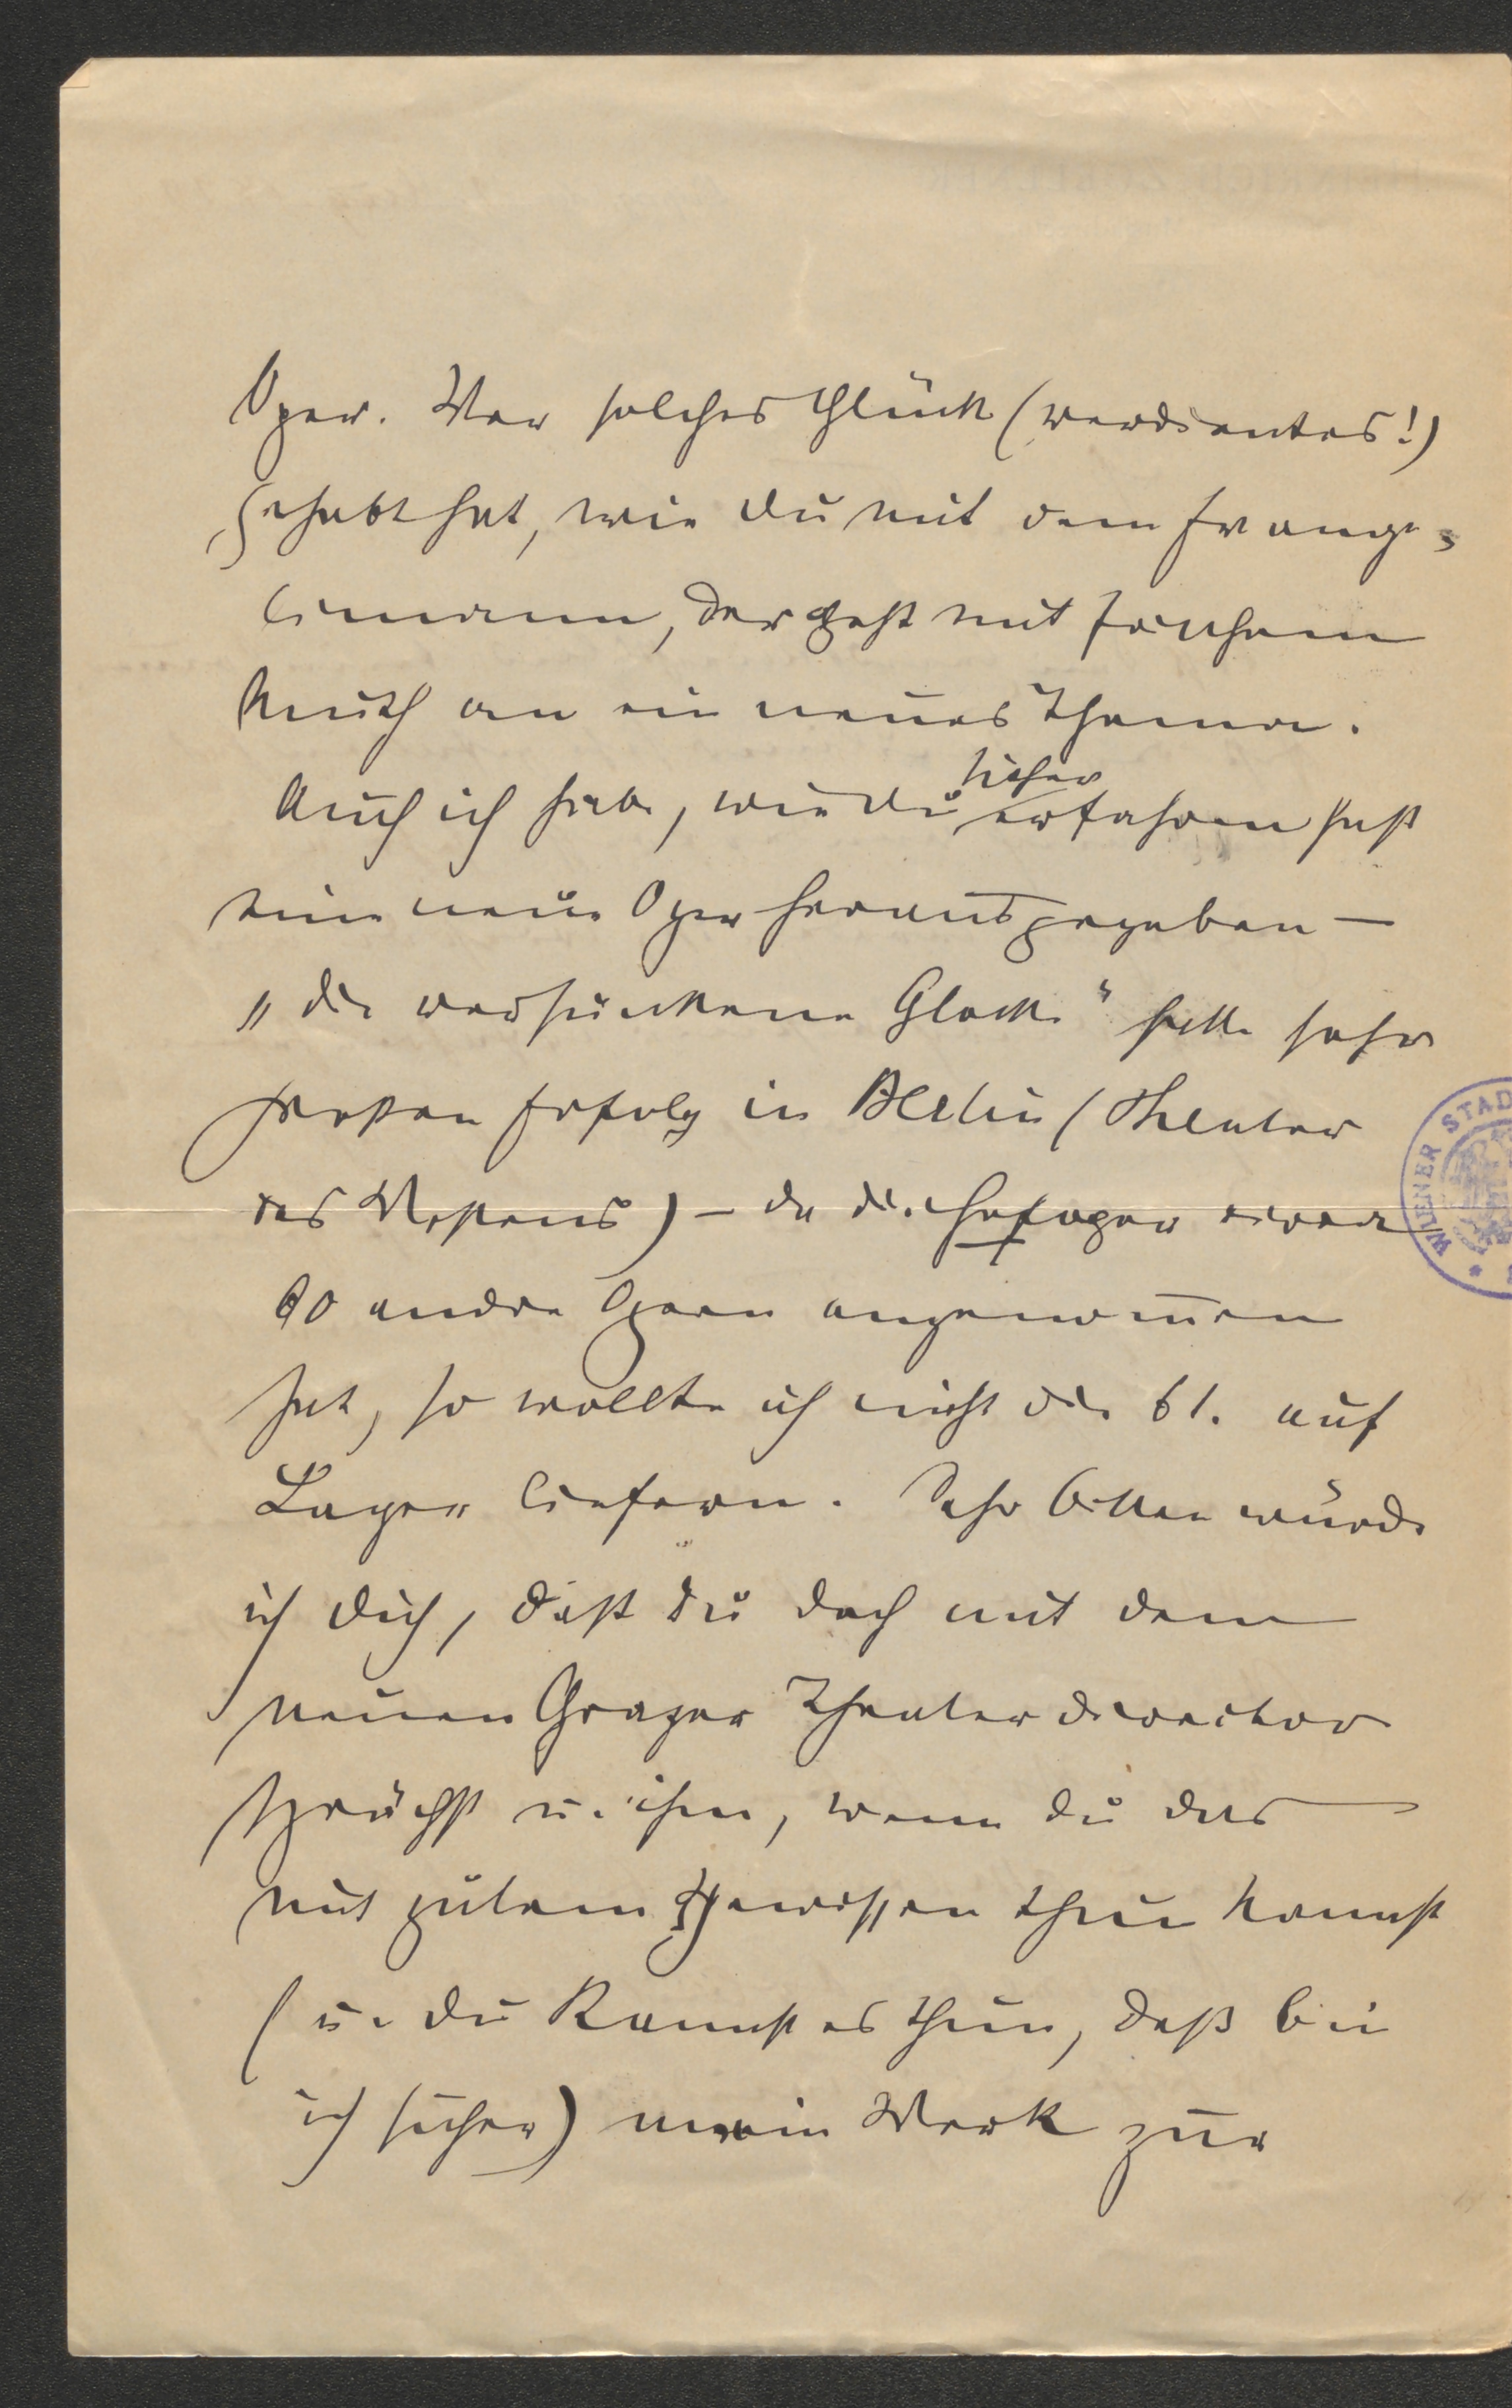 Oper. Wer solches Glück (verdientes!)
gehabt hat, wie Du mit dem Evange-
limann, der geht mit frischem
Muth an ein neues Thema.
Auch ich habe, wie Du sicher erfahren hast
eine neue Oper herausgegeben –
„die versunkene Glocke“ hatte sehr
großen Erfolg in Berlin (Theater
des Westens) – da die Hofoper
60 andre Opern angenommen
hat, so wollte ich nicht die 61. auf
Lager liefern. Sehr bitten würde
ich Dich, daß Du doch mit dem
neuen Grazer Theaterdirector
sprichst u. ihm, wenn Du das
mit gutem Gewissen thun kannst
(u. Du kannst es thun, daß bin
ich sicher) mein Werk zur
WIENER STAD